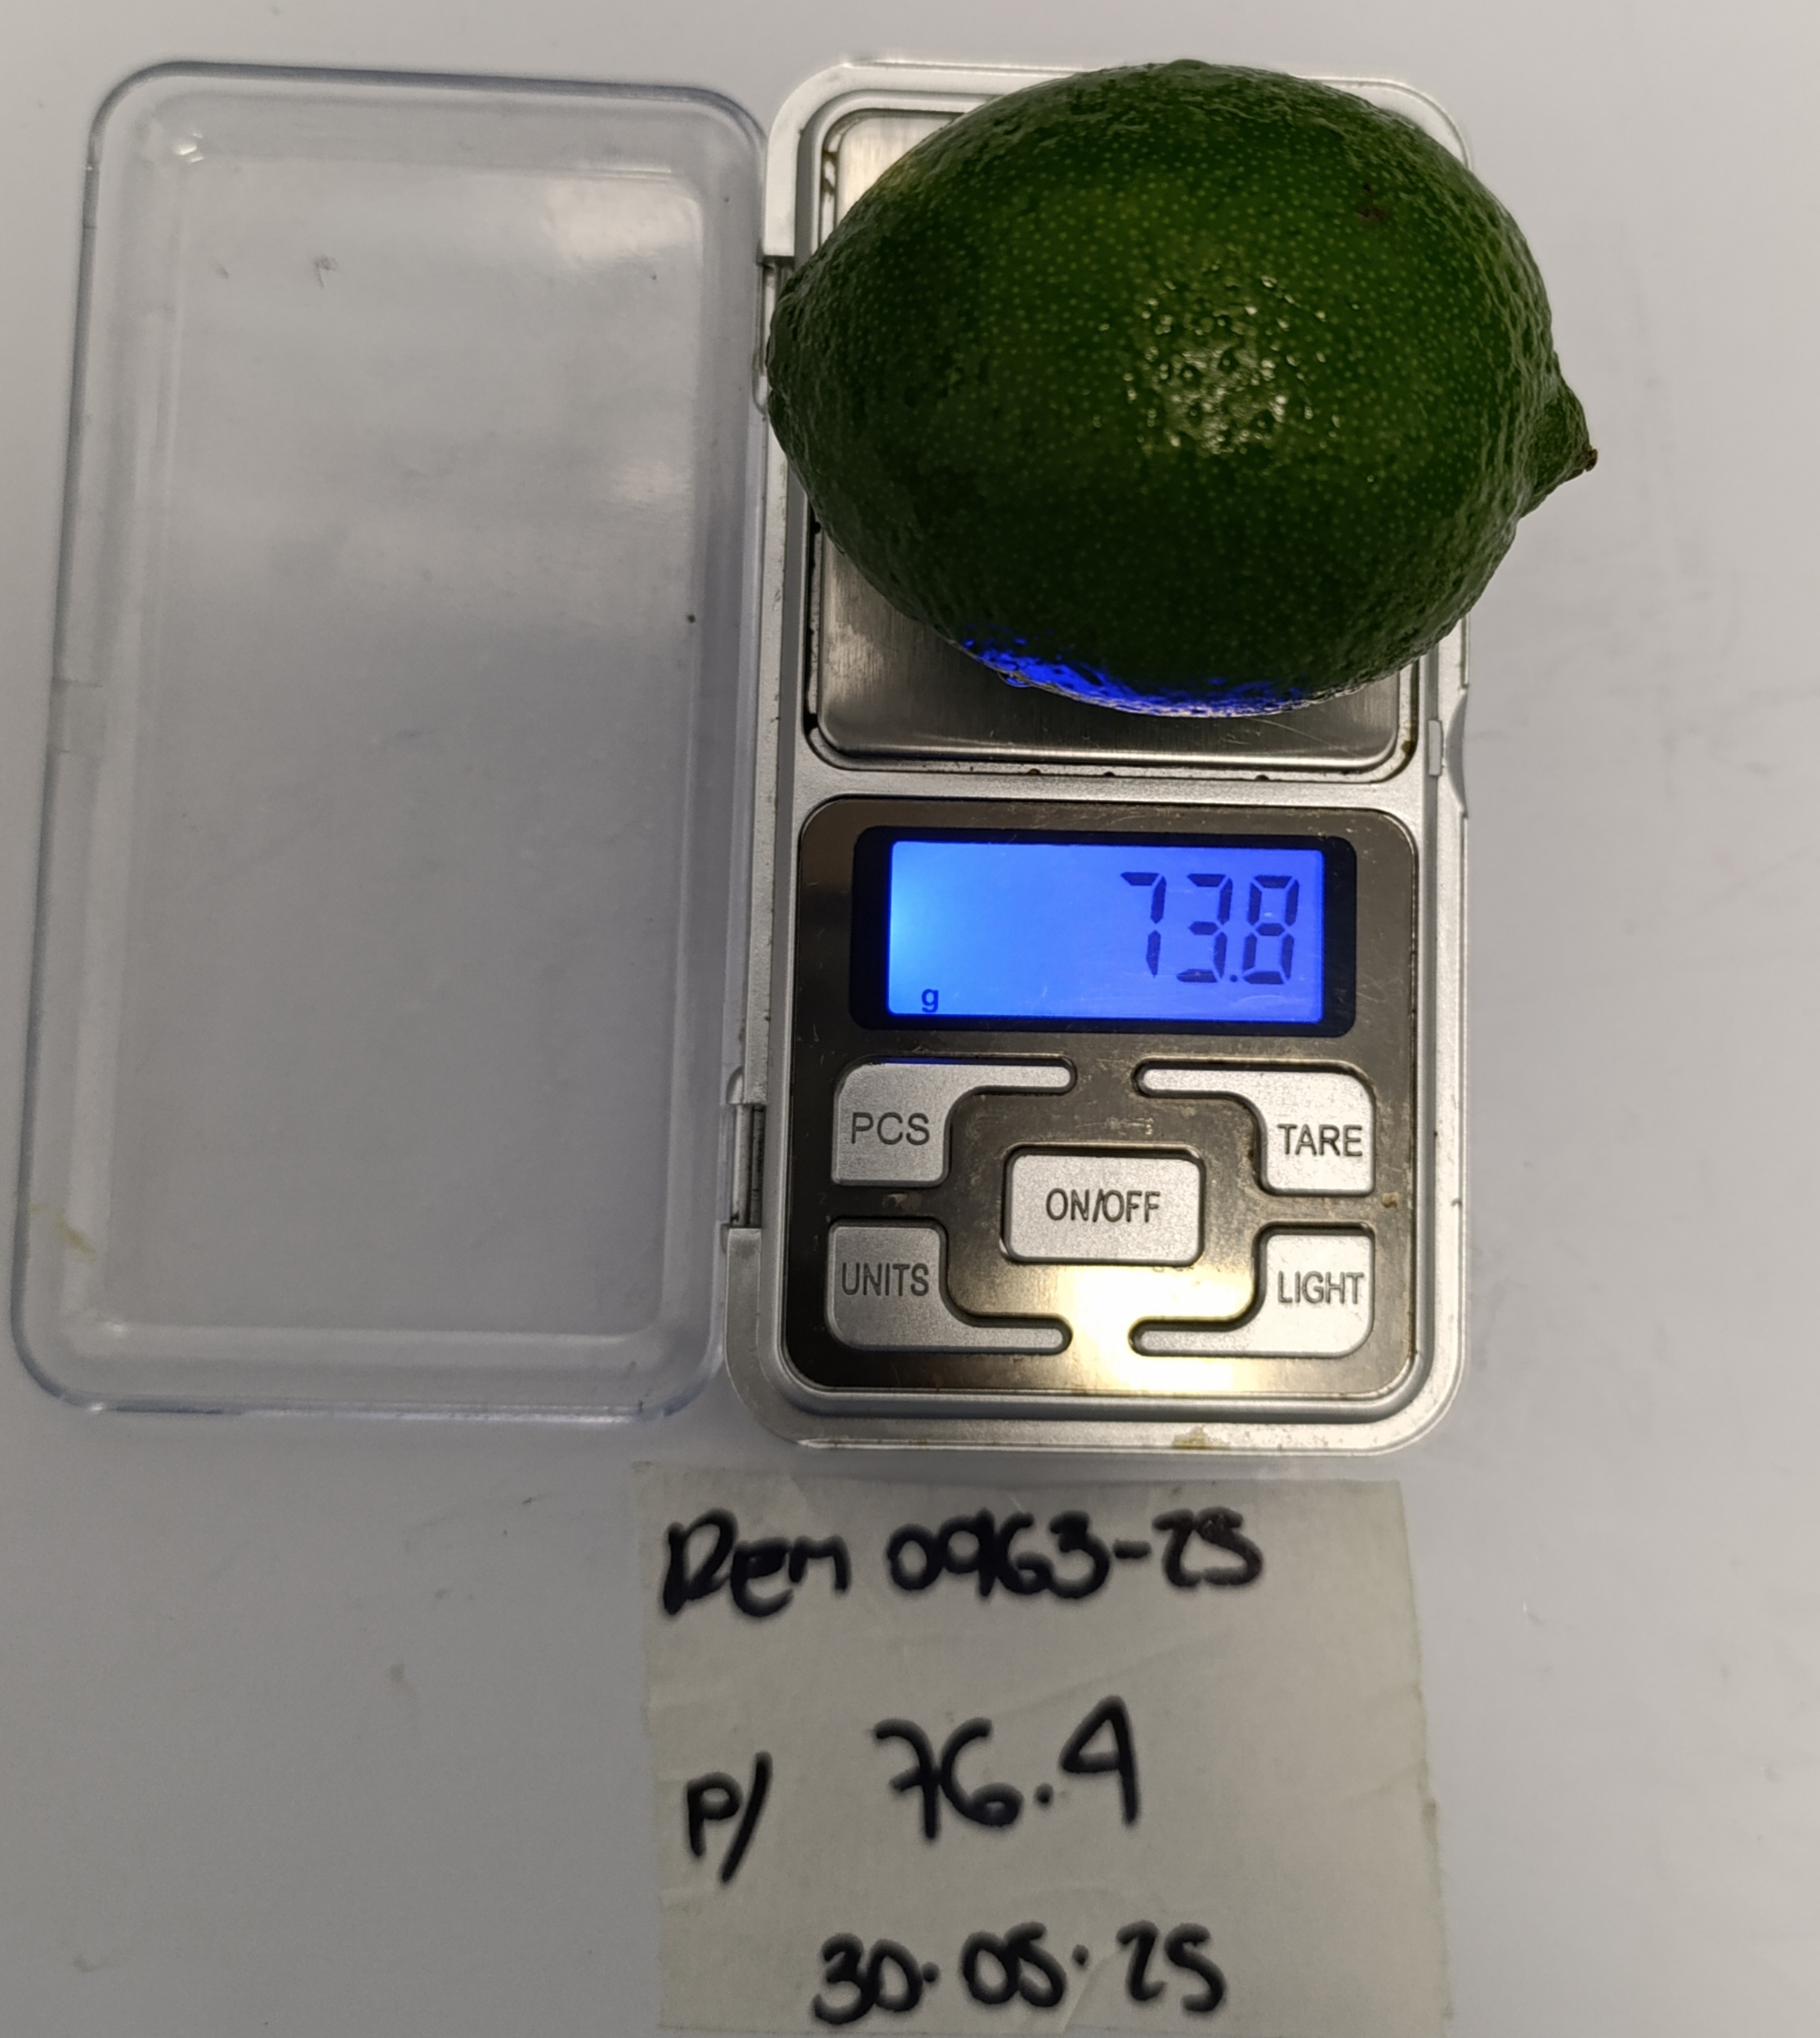 73.8
g
PCS
TARE
ON/OFF
UNITS
LIGHT
Rem 0963-25
P/ 76.4
30.05.25